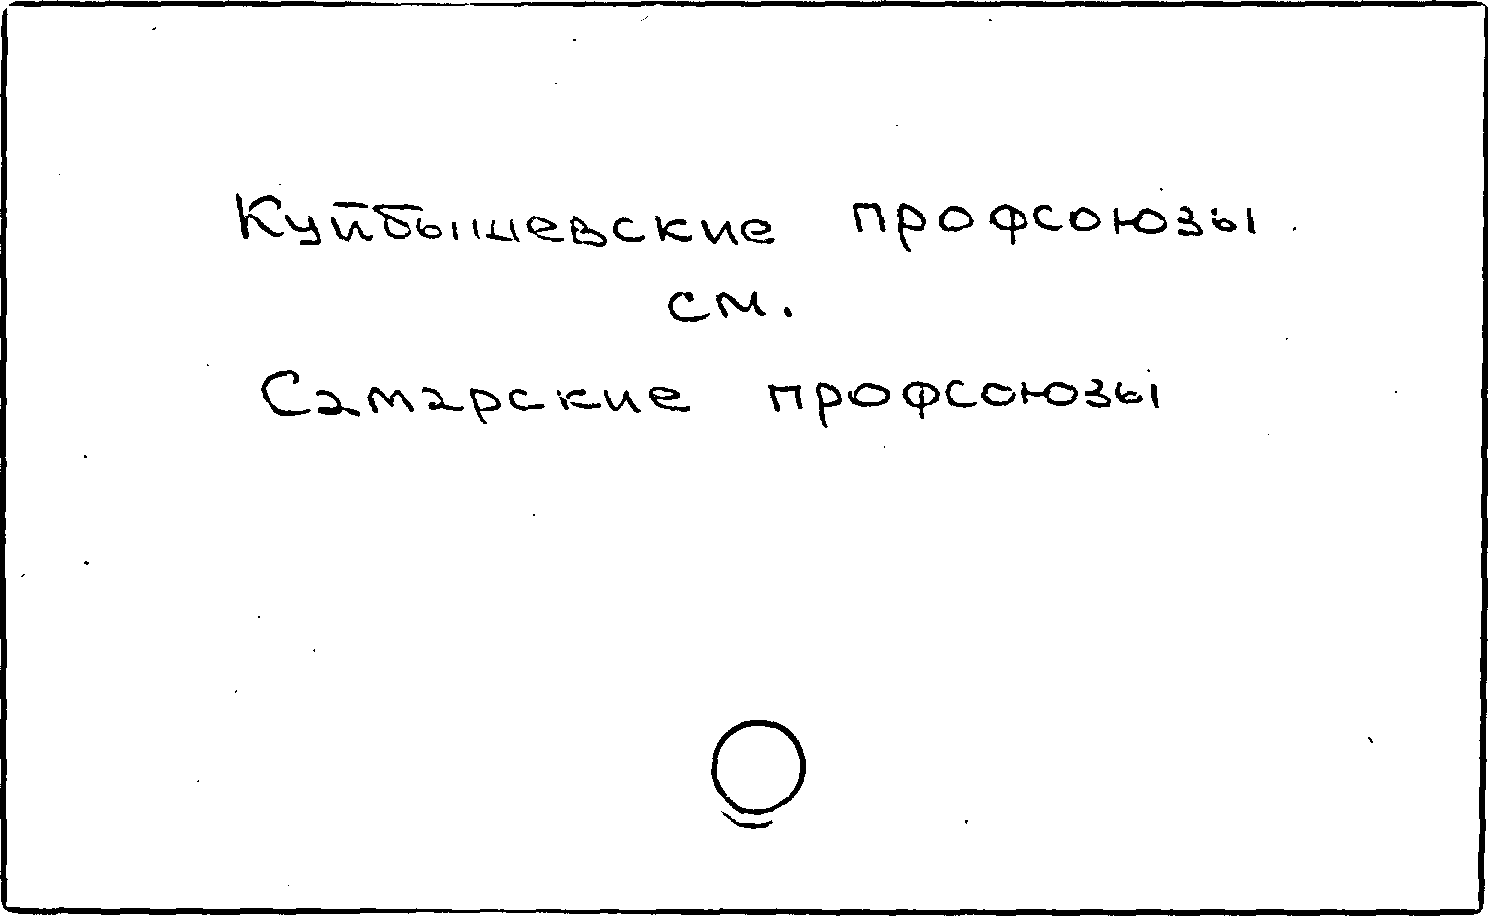 Куйбышевские профсоюзы
см.
Самарские профсоюзы